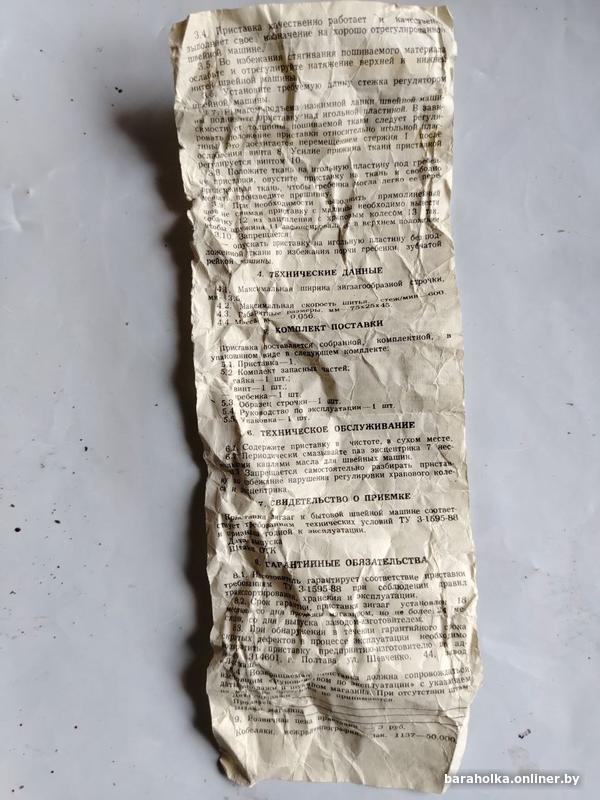 3.4. Приставка качественно работает и качественно
выполняет свое назначение на хорошо отрегулированной
швейной машине.
3.5. Во избежания стягивания пошиваемого материала
ослабьте и отрегулируйте натяжение верхней и нижней
нитей швейной машины.
Установите требуемую длину стежка регулятором
швейной машины.
3.7. Рычаг подъема нажимной лапки швейной маши
игольной пластиной. В зави
симости от толщины пошиваемой ткани следует регули
ровать положение приставки относительно игольной плас
тины, достигается перемещением стержня 1 после
ослабления винта 8. Усилие прижима ткани приставкой
регулируется винтом
3.8. Положите ткань на игольную пластину под гребен
приставки, опустите приставку на ткань и свободно
ткань, чтобы гребенка могла легко ее пере
произведите прошивку.
При необходимости выполнить прямолинейный
шов не снимая приставку с машины необходимо вывести
собачку 12 из зацепления с храповым колесом 13 так,
чтобы пружина 11 зафиксировала в верхнем положении.
3.10. Запрещается:
— опускать приставку на игольную пластину без под-
ложенной ткани во избежания порчи гребенки, зубчатой
рейкой машины.
4. ТЕХНИЧЕСКИЕ ДАННЫЕ
4.1. Максимальная ширина зигзагообразной строчки,
мм
4.2. Максимальная скорость шитья, стеж/мин—600.
4.3. Габаритные размеры, мм 75х25х45
4.4. Масса 0,056.
КОМПЛЕКТ ПОСТАВКИ
Приставка поставляется собранной, комплектной, в
упакованном виде в следующем комплекте:
5.1. Приставка—1.
5.2 Комплект запасных частей;
гайка—1 шт.;
винт—1 шт.;
гребенка—1 шт.
5.3. Образец строчки—1 шт.
5.4. Руководство по эксплуатации—1 шт.
5.5. Упаковка—1 шт.
6. ТЕХНИЧЕСКОЕ ОБСЛУЖИВАНИЕ
6.1. Содержите приставку в чистоте, в сухом месте.
6.2. Периодически смазывайте паз эксцентрика 7 нес-
колькими каплями масла для швейных машин.
Запрещается самостоятельно разбирать пристав-
ку во избежание нарушения регулировки храпового коле-
са и эксцентрика.
7. СВИДЕТЕЛЬСТВО О ПРИЕМКЕ
Приставка зигзаг к бытовой швейной машине соответ-
ствует требованиям технических условий ТУ 3-1595-88
и признана годной к эксплуатации.
Дата выпуска
Штамп ОТК
8. ГАРАНТИЙНЫЕ ОБЯЗАТЕЛЬСТВА
8.1. Изготовитель гарантирует соответствие приставки
требованиям ТУ 3-1595-88 при соблюдении правил
транспортирования, хранения и эксплуатации.
8.2. Срок гарантии, приставки зигзаг установлен 18
месяцев со дня продажи магазином, но не более
со дня выпуска заводом-изготовителем.
8.3. При обнаружении в течении гарантийного срока
скрытых дефектов в процессе эксплуатации необходимо
приставку предприятию-изготовителю
314601, г. Полтава Шевченко, 44, завод
Возвращаемая приставка должна сопровождаться
«Руководством по эксплуатации» с указанием
даты продажи и штампом магазина. При отсутствии штампа
не принимаются.
Штамп магазина
9. Розничная цена приставки 3 руб.
Кобеляки, межрайтипография, зак. 1137—50.000
baraholka.onliner.by